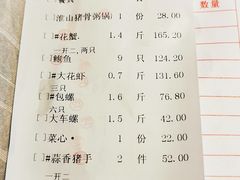 [ ]淮山猪骨粥锅) 1 份 28.00
[ ]#花蟹. 1.4 斤 165.20
一开二,两只
[ ]鲍鱼 9 只 124.20
三只
[ ]#大花虾 0.7 斤 131.60
[ ]#包螺 1.6 斤 76.80
六只
[ ]大车螺 1.5 斤 42.00
[ ]菜心· 1 份 22.00
[ ]#蒜香猪手 2 件 52.00
一开二
数量